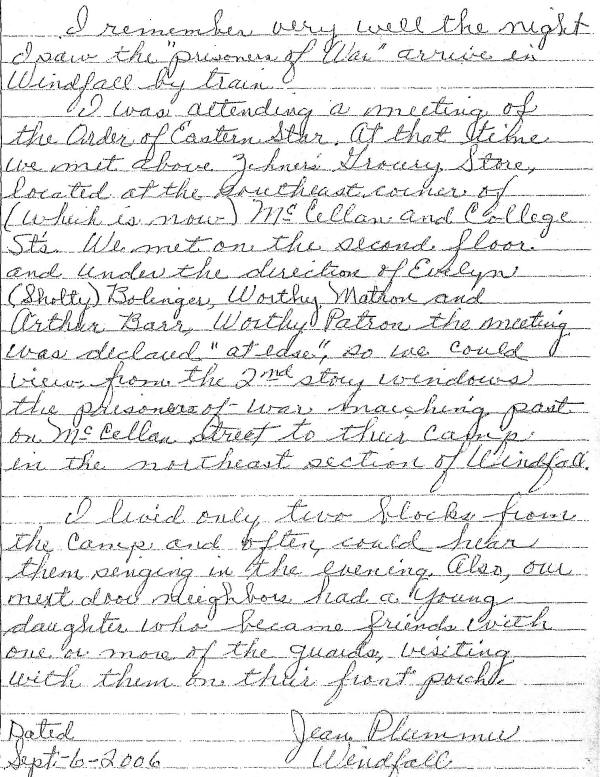 I remember very well the night
I saw the "prisoners of War" arrive in
Windfall by train.
I was attending a meeting of
the Order of Eastern Star. At that time
we met above Zehner's Grocery Store,
located at the southeast corner of
(which is now) McCellan and College
Sts. We met on the second floor
and under the direction of Evelyn
(Sholty) Bolinger, Worthy Matron and
Arthur Barr, Worthy Patron the meeting
was declared "at ease", so we could
view from the 2nd story windows
the prisoners-of-war marching past
on McCellan Street to their camp
in the northeast section of Windfall.
I lived only two blocks from
the camp and often could hear
them singing in the evening. Also, our
next door neighbors had a young
daughter who became friends with
one or more of the guards, visiting
with them on their front porch.
Dated Jean Plummer
Sept-6-2006 Windfall